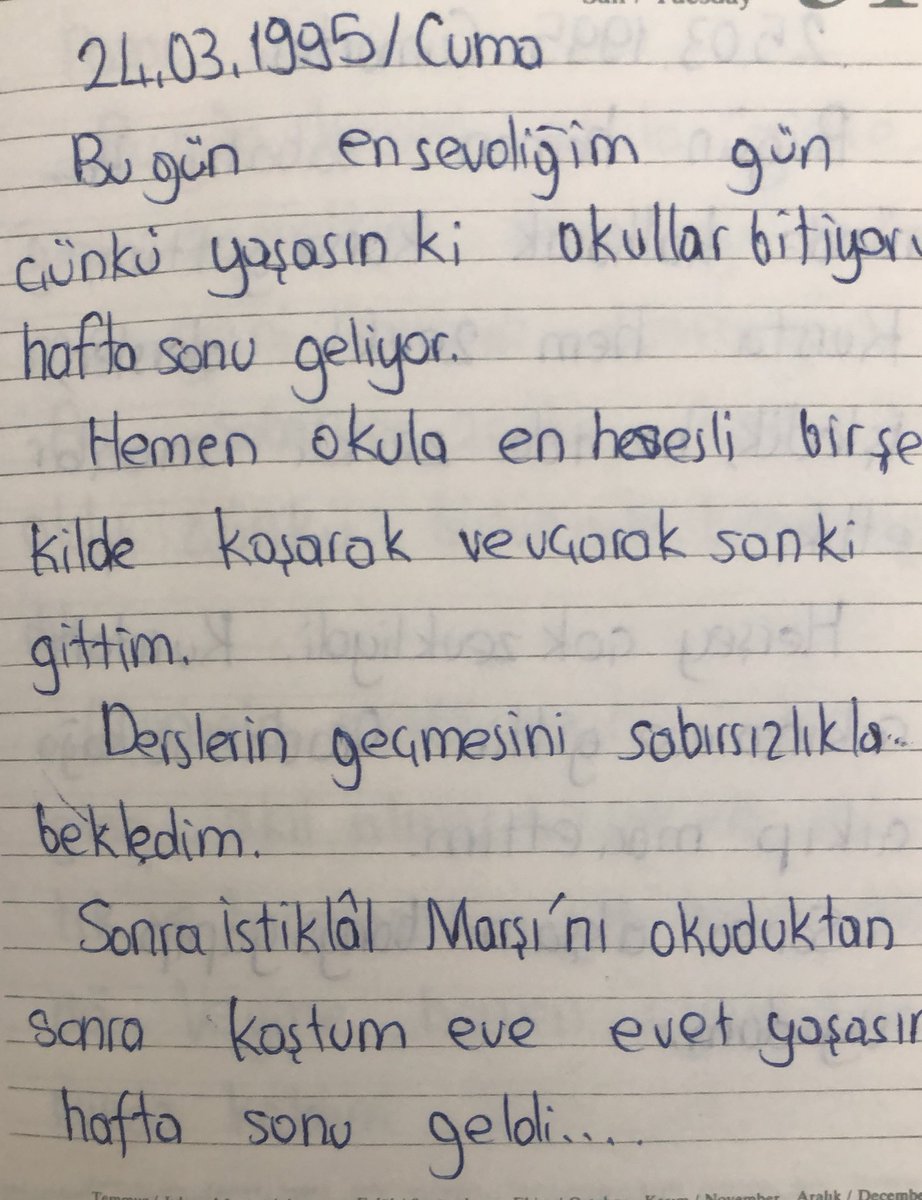 24.03.1995/Cuma
Bu gün en sevdiğim gün
çünkü yaşasın ki okullar bitiyor,
hafta sonu geliyor.
Hemen okula en hevesli bir şe
kilde koşarak ve uçarak sanki
gittim.
Derslerin geçmesini sabırsızlıkla..
bekledim.
Sonra istiklâl Marşı'nı okuduktan
sonra koştum eve evet yaşasın
hafta sonu geldi....